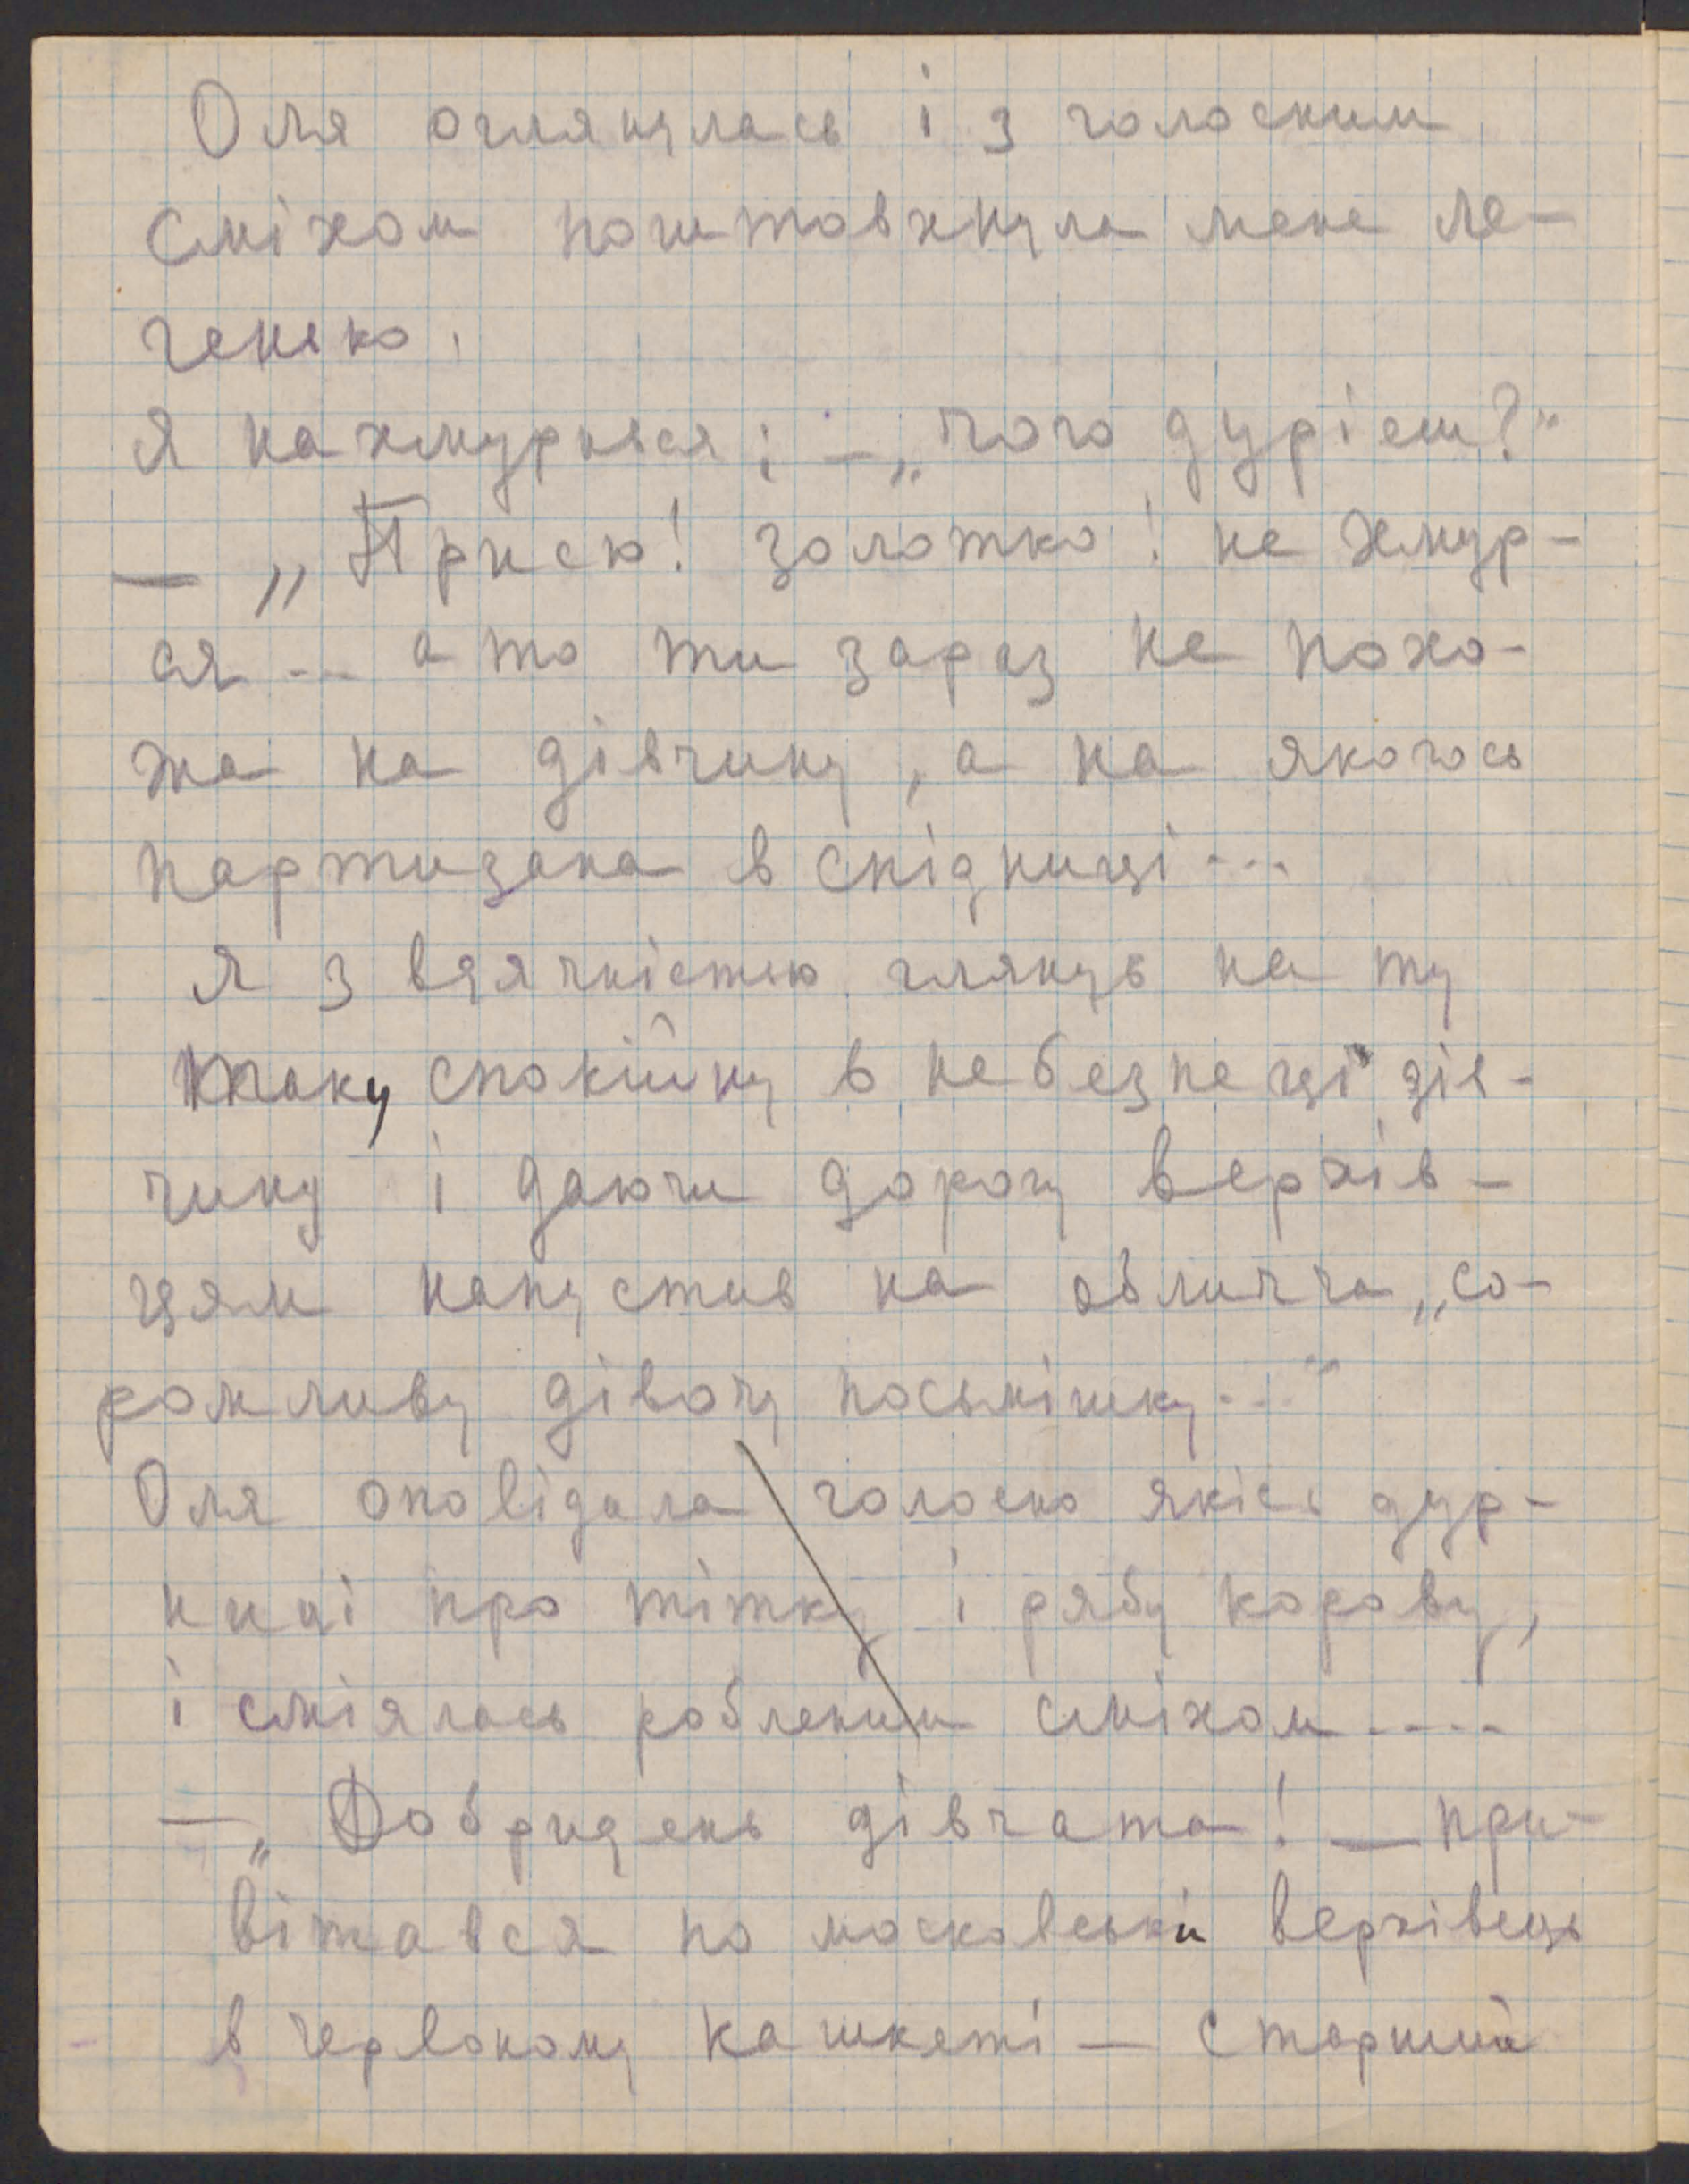 Оля оглянулась і з голосним
сміхом поштовхнула мене ле-
генько.
Я нахмурився; – „чого дурієш?"
— „Присю! золотко! не хмур-
ся... а то ти зараз не похо-
жа на дівчину, а на якогось
партизана в спідниці...
Я з вдячністю глянув на ту
таку спокійну в небезпеці дів-
чину і даючи дорогу верхів-
цям напустив на обличча „со-
ромливу дівочу посьмішку..."
Оля оповідала голосно якісь дур-
ниці про тітку і рябу корову,
і сміялась робленим сміхом....
— „Добридень дівчата! — при-
вітався по московськи верхівець
в червоному кашкеті — старший